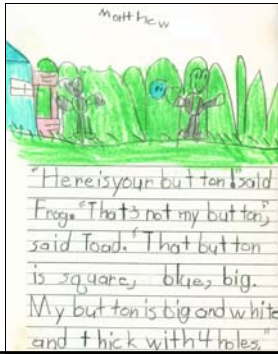 Matthew
"Here is your button!" said
Frog. "That's not my button,"
said Toad. "That button
is square, blue, big.
My button is big and white
and thick with 4 holes."